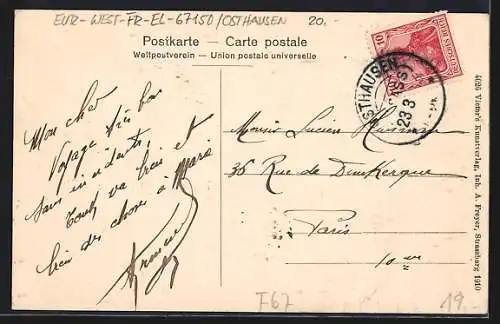 EUR-WEST-FR-EL-67150/OSTHAUSEN 20.
Postkarte – Carte postale
Weltpostverein – Union postale universelle
DEUTSCHES REICH
10
OSTHAUSEN
23 3
Mon cher
Voyage très bon
sans incidents,
Tout va bien et
bien des choses à Marie
Monsieur Lucien
36 Rue de Dunkerque
Paris
10
4026 Vierne's Kunstverlag, Inh. A. Freyer, Strassburg 1910
F67
19.-